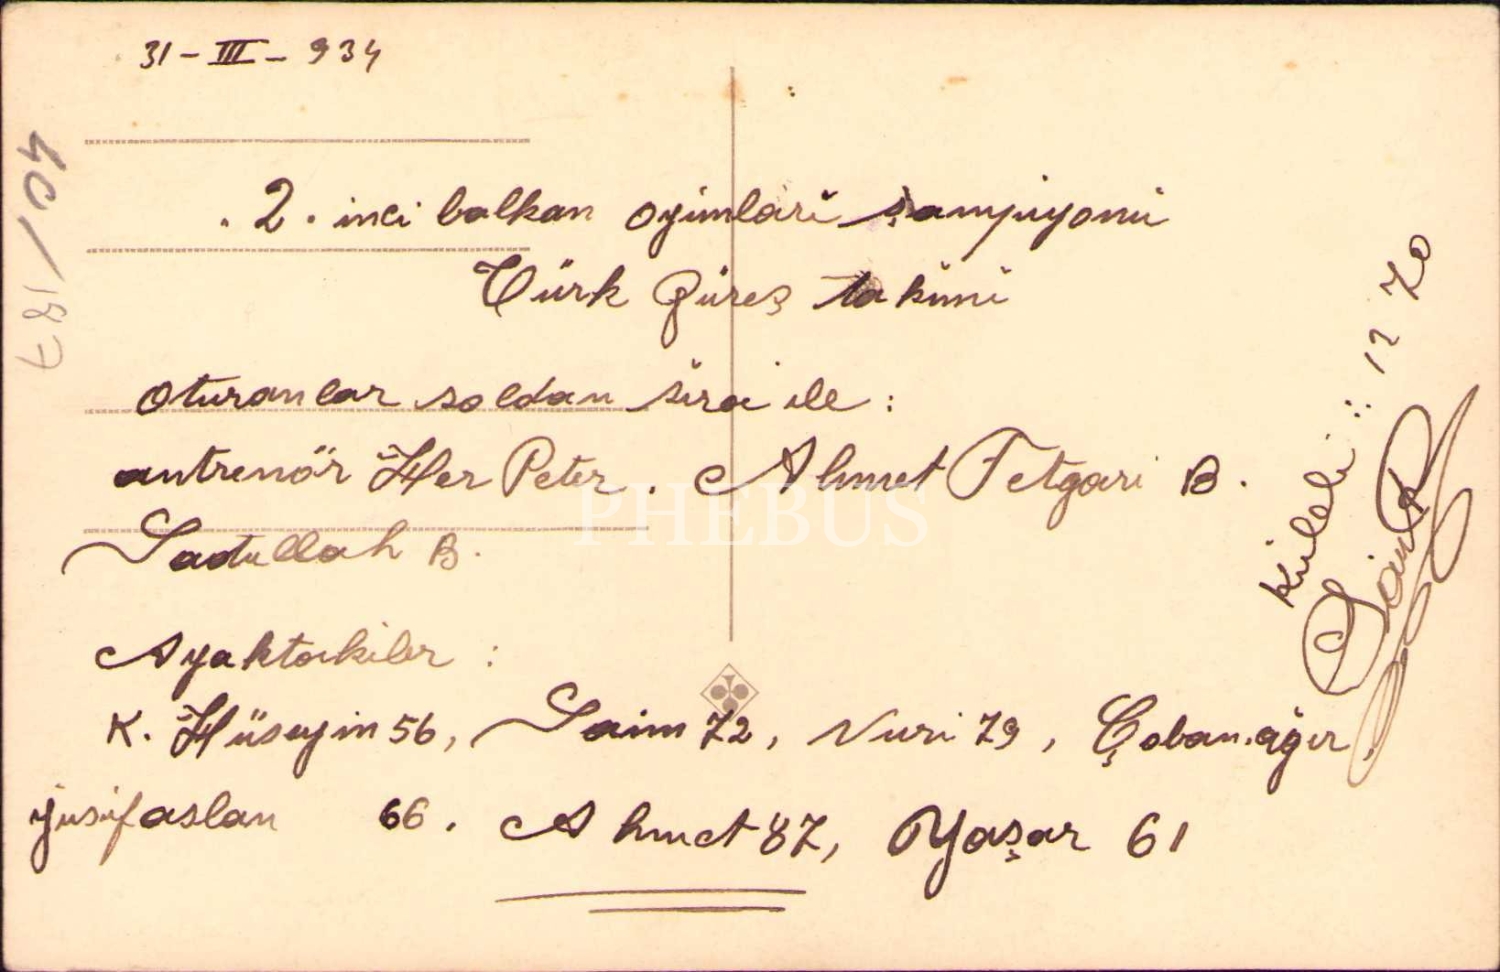 31-III-934
2.inci balkan oyimlari şampiyoni
Türk Güreş takimi
Oturanlar soldan sira ile :
antrenör Her Peter. Ahmet Fetgari B.
Sadullah B.
Ayaktakiler :
K. Hüseyin 56, Saim 72, Nuri 79, Çoban.ağır,
yusuf aslan 66. Ahmet 87, Yaşar 61
Küleli : 1270
40/187
PHEBUS